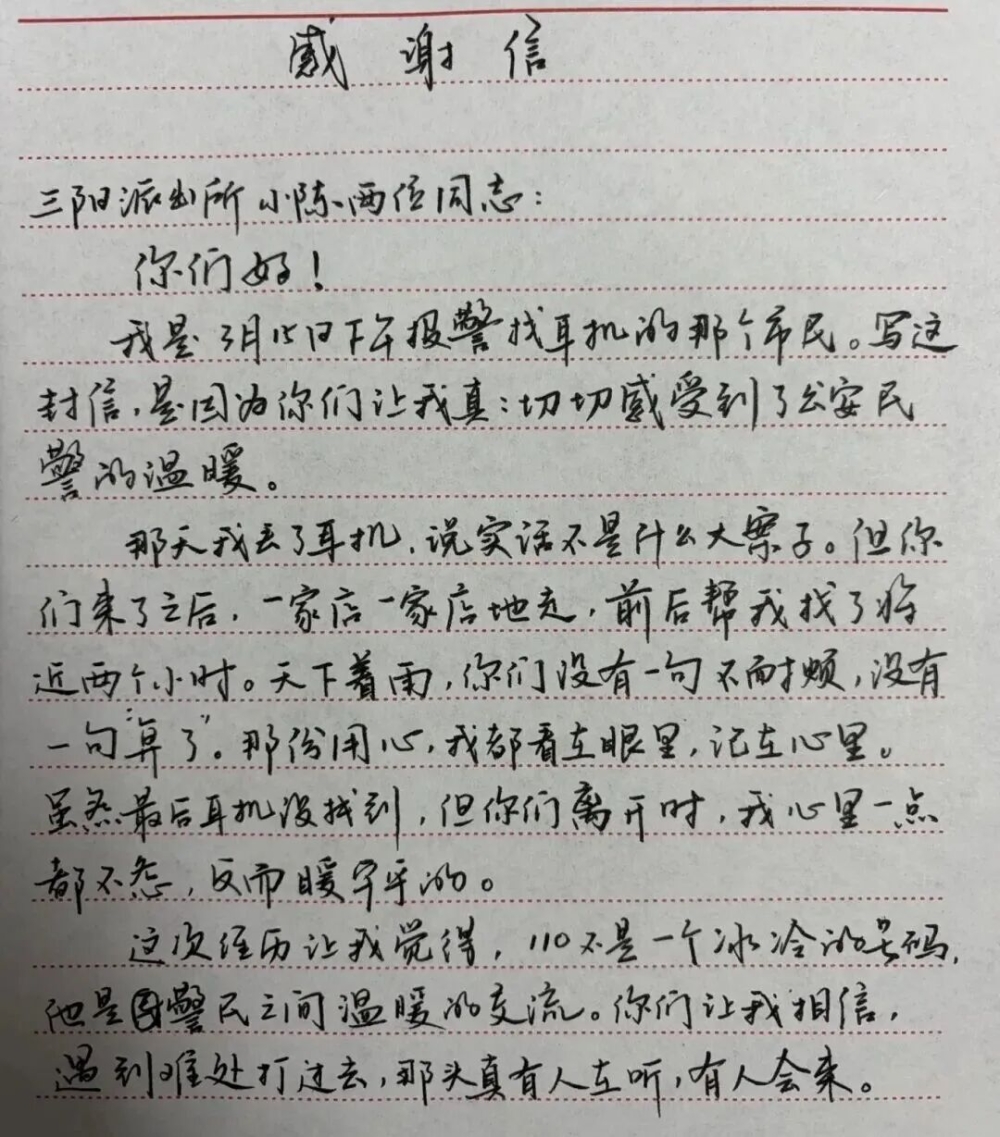 感谢信
三阳派出所小陈两位同志:
你们好!
我是3月15日下午报警找耳机的那个市民。写这
封信,是因为你们让我真:切切感受到了公安民
警的温暖。
那天我丢了耳机,说实话不是什么大案子。但你
们来了之后,一家店一家店地走,前后帮我找了将
近两个小时。天下着雨,你们没有一句不耐烦,没有
一句“算了”。那份用心,我都看在眼里,记在心里。
虽然最后耳机没找到,但你们离开时,我心里一点
都不怨,反而暖乎乎的。
这次经历让我觉得,110不是一个冰冷的号码,
他是警民之间温暖的交流。你们让我相信,
遇到难处打过去,那头真有人在听,有人会来。